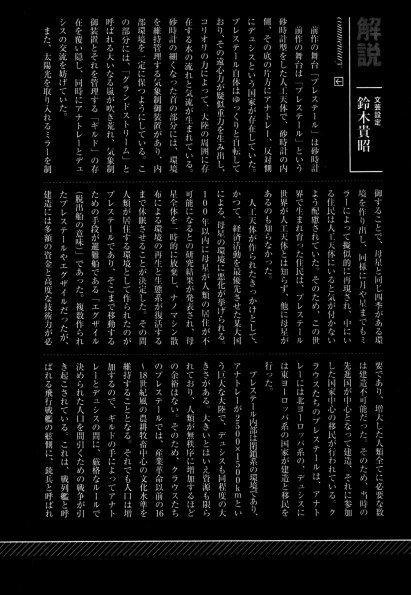 解説
commentary
文芸設定
鈴木貴昭
前作の舞台「プレステール」は砂時計
前作の舞台は「プレステール」という
砂時計型をした人工天体で、砂時計の内
側、その底の片方にアナトレー、反対側
にデュシスという国家が存在していた。
プレステール自体はゆっくりと自転して
おり、その遠心力が疑似重力を生み出し、
コリオリの力によって、大陸の周囲に存
在する水の流れと気流が生まれている。
砂時計の細くなった首の部分には、環境
を維持管理する気象制御装置があり、内
部環境を一定に保つようにしている。こ
の部分には、「グランドストリーム」と
呼ばれる大いなる嵐が吹き荒れ、気象制
御装置とそれを管理する「ギルド」の存
在を覆い隠し、同時にアナトレーとデュ
シスの交流を妨げていた。
また、太陽光を取り入れるミラーを制
御することで、母星と同じ四季がある環
境を作り出し、同様に月や星までもミ
ラーによって擬似的に再現され、中にい
る住民は人工天体にいると気が付かない
よう配慮されていた。そのため、この世
界で生まれ育った住民は、プレステール
世界が人工天体とは知らず、他に母星が
あるのも知らなかった。
人工天体が作られたきっかけとして、
かつて、経済活動を最優先させた某大国
による、母星の環境に悪化が挙げられる。
100年以内に母星が人類の居住が不
可能になるとの研究結果が発表され、母
星全体を一時的に放棄し、ナノマシン散
布による環境の再生と生態系が復活する
まで休ませることが決定した。その間、
人類が居住する環境として作られたのが
プレステールであり、そこまで移動する
ための手段が避難船である「エグザイル
（脱出船の意味）」であった。複数作られ
たプレステールやエグザイルだったが、
建造には多額の資金と高度な技術力が必
要であり、増大した人類全てに必要な数
は建造不可能だった。そのため、当時の
先進国が中心となって建造、それに参加
した国家中心の移民が行われている。ク
ラウスたちのプレステールは、アナト
レーには北ヨーロッパ系の、デュシスに
は東ヨーロッパ系の国家が建造と移民を
行った。
プレステール内部は閉鎖系の環境であり、
アナトレーが2500×1500kmとい
う巨大な大陸で、デュシスも同程度の大
きさがある。大きいとはいえ資源も限ら
れており、人類が無秩序に増加するほど
の余裕はない。そのため、クラウスたち
のプレステールでは、産業革命以前の16
～18世紀風の農耕牧畜中心の文化水準を
維持することとなる。それでも人口は増
加するので、ギルドの手によってアナト
レーとデュシスの間に、厳格なルールで
決められた人口を間引くための戦争が引
き起こされている。これは、戦列艦と呼
ばれる飛行戦艦の舷側に、銃兵と呼ばれ